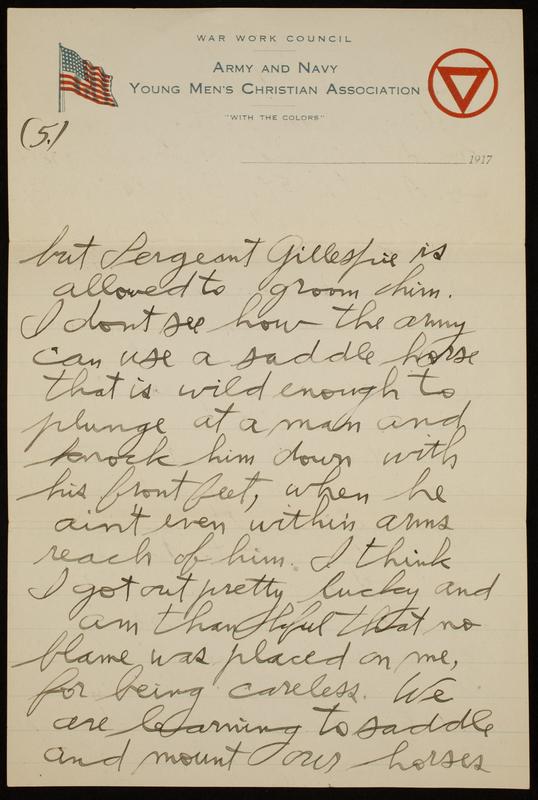 WAR WORK COUNCIL
ARMY AND NAVY
YOUNG MEN'S CHRISTIAN ASSOCIATION
"WITH THE COLORS"
(5.)
1917
but Sergeant Gillespie is
allowed to groom him.
I dont see how the army
can use a saddle horse
that is wild enough to
plunge at a man and
knock him down with
his front feet, when he
ain't even within arms
reach of him. I think
I got out pretty lucky and
am thankful that no
blame was placed on me,
for being careless. We
are learning to saddle
and mount our horses